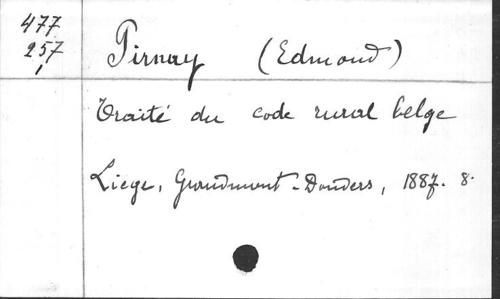 477
257
1
Pirnay (Edmond)
Traité du code rural belge
Liège, Grandmont-Donders, 1887. 8.